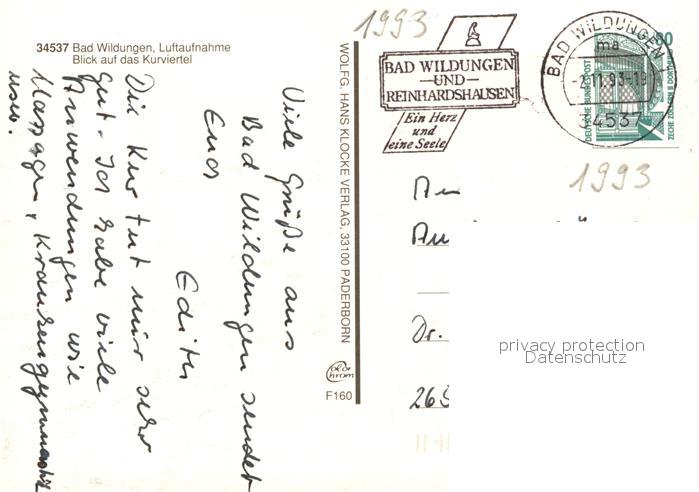 34537 Bad Wildungen, Luftaufnahme
Blick auf das Kurviertel
Viele Grüße aus
Bad Wildungen sendet
Euch
Edith
Die Kur tut mir sehr
gut. Ich habe viele
Anwendungen wie
Massagen, Krankengymnastik
usw.
WOLFG. HANS KLOCKE VERLAG, 33100 PADERBORN
Color
chrom
F160
1993
BAD WILDUNGEN
UND
REINHARDSHAUSEN
Ein Herz
und
eine Seele
BAD WILDUNGEN
ma
-2.11.93-19
34537
DEUTSCHE BUNDESPOST
ZECHE ZOLLERN II DORTMUND
1993
An
Dr.
privacy protection
Datenschutz